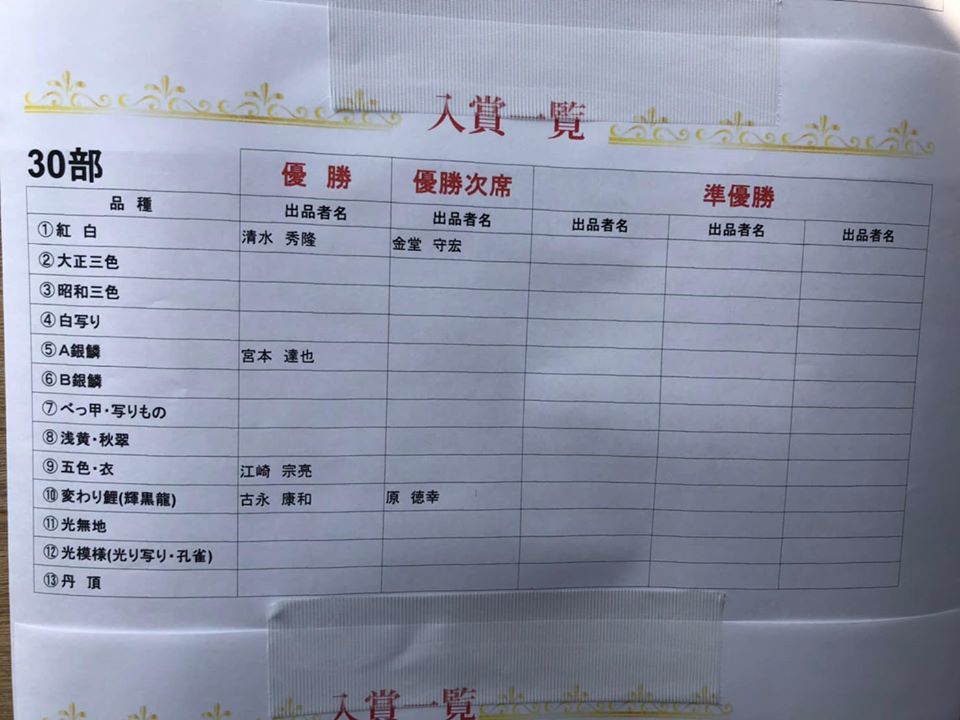 入賞一覧
30部
優 勝 優勝次席 準優勝
品 種 出品者名 出品者名 出品者名 出品者名 出品者名
①紅 白 清水 秀隆 金堂 守宏
②大正三色
③昭和三色
④白写り
⑤A銀鱗 宮本 達也
⑥B銀鱗
⑦べっ甲・写りもの
⑧浅黄・秋翠
⑨五色・衣 江崎 宗亮
⑩変わり鯉(輝黒龍) 古永 康和 原 徳幸
⑪光無地
⑫光模様(光り写り・孔雀)
⑬丹 頂
入賞一覧